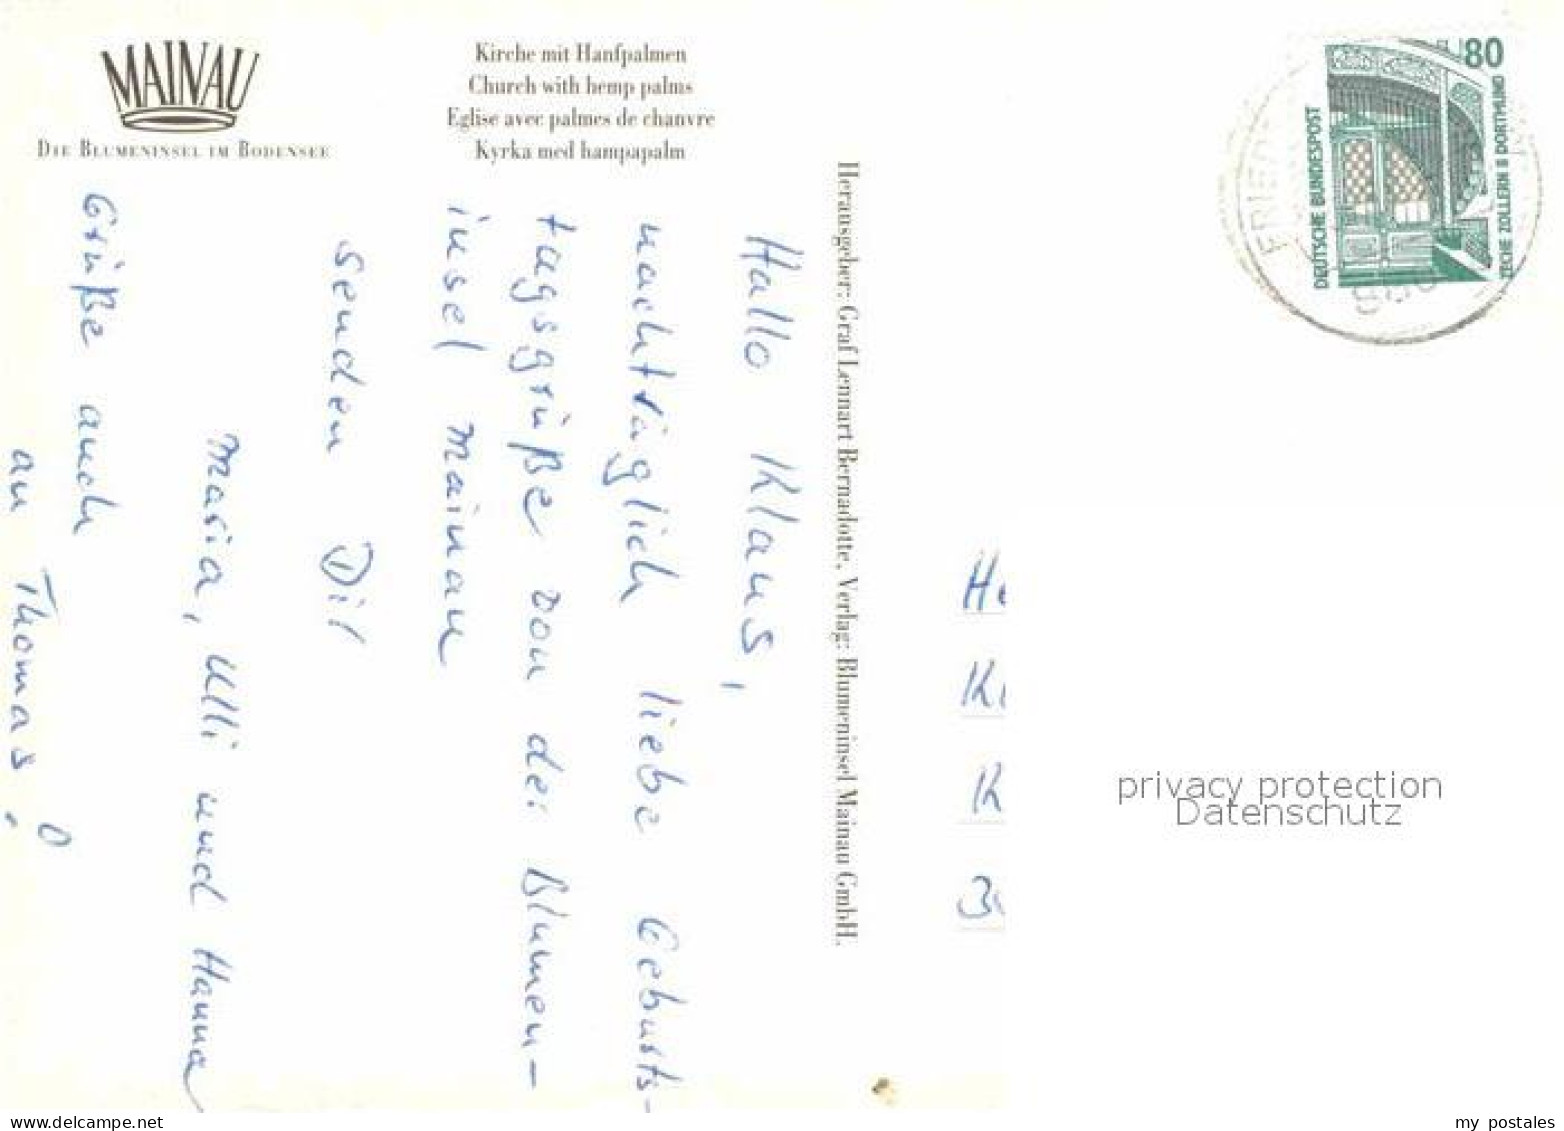 MAINAU
DIE BLUMENINSEL IM BODENSEE
Kirche mit Hanfpalmen
Church with hemp palms
Eglise avec palmes de chanvre
Kyrka med hampapalm
Hallo Klaus,
nachträglich liebe Geburts-
tagsgrüße von der Blumen-
insel Mainau
senden Dir
Maria, Ulli und Hanna
Grüße auch
an Thomas!
Herausgeber: Graf Lennart Bernadotte, Verlag: Blumeninsel Mainau GmbH.
80
DEUTSCHE BUNDESPOST
ZECHE ZOLLERN II DORTMUND
privacy protection
Datenschutz
www.delcampe.net
my postales